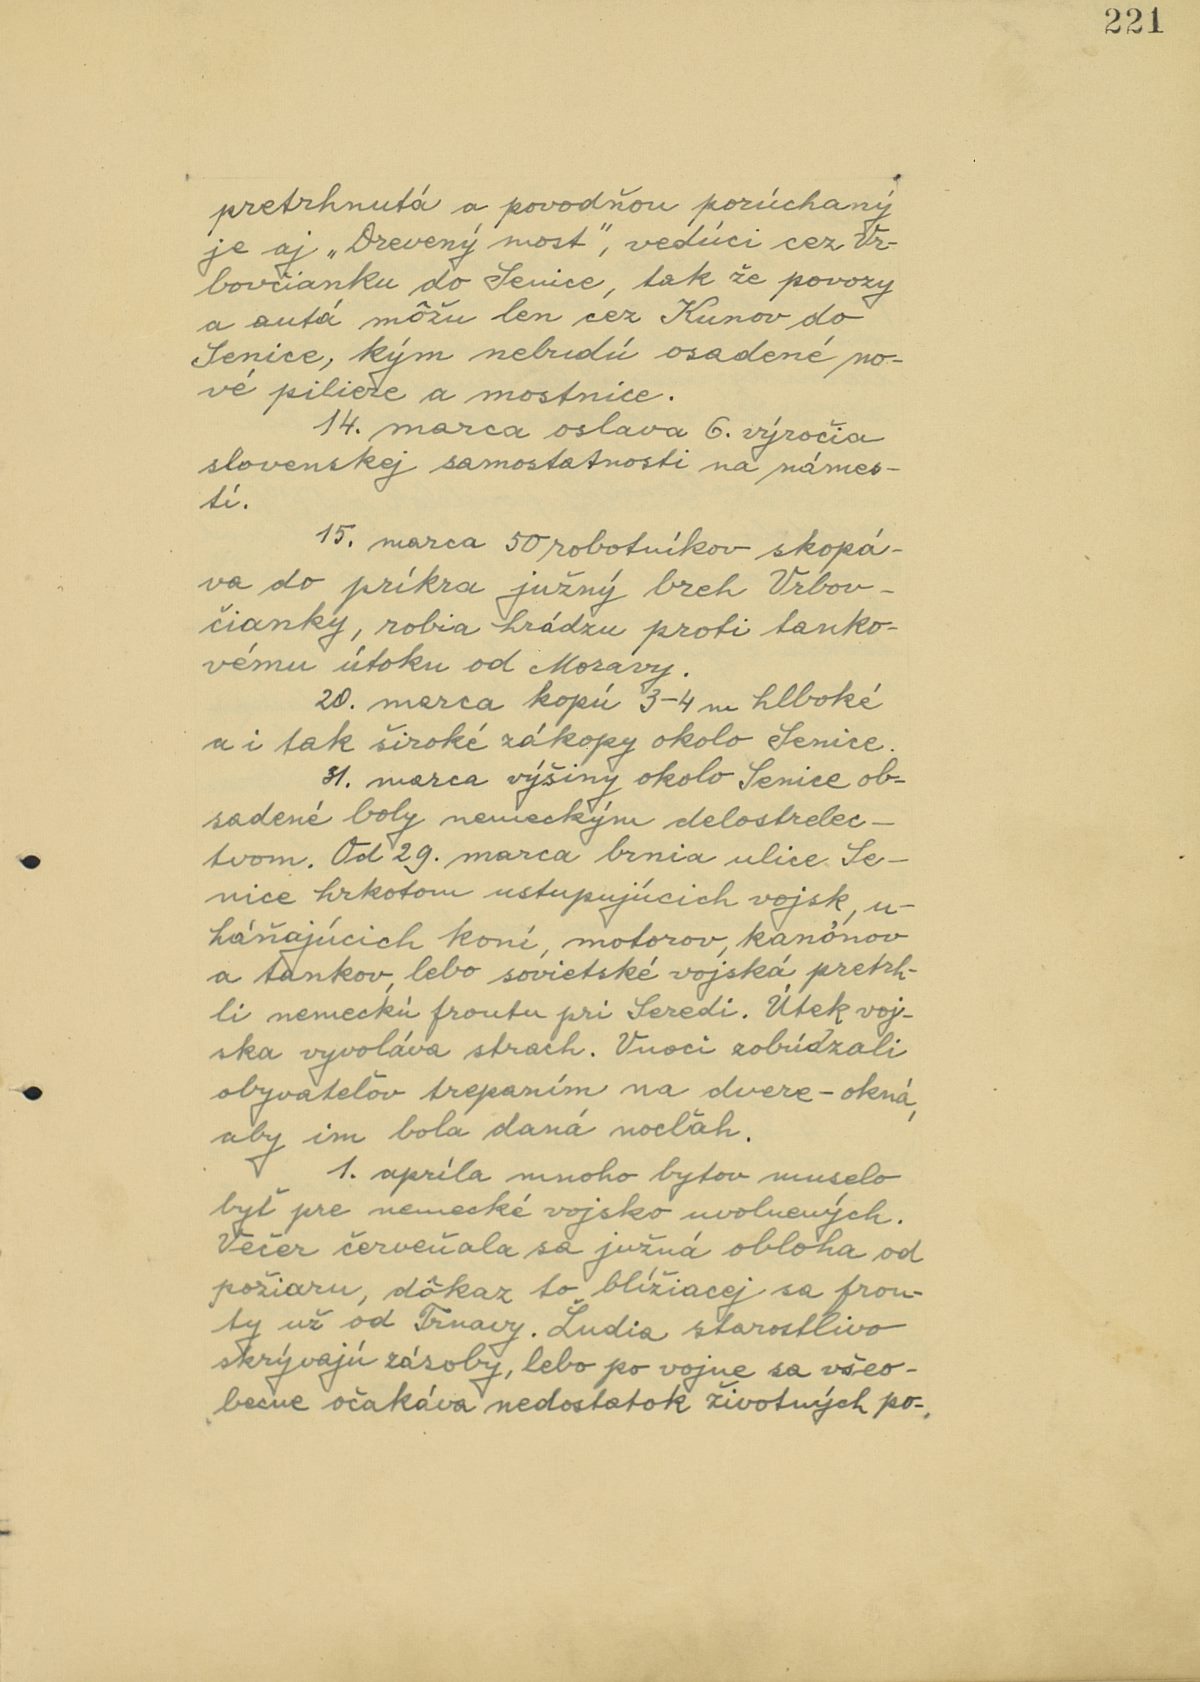 221
pretrhnutá a povodňou porúchaný
je aj „Drevený most", vedúci cez Vr-
bovčianku do Senice, tak že povozy
a autá môžu len cez Kunov do
Senice, kým nebudú osadené no-
vé piliere a mostnice.
14. marca oslava 6. výročia
slovenskej samostatnosti na námes-
tí.
15. marca 50 robotníkov skopá-
va do príkra južný breh Vrbov-
čianky, robia hrádzu proti tanko-
vému útoku od Moravy.
20. marca kopú 3-4 m hlboké
a i tak široké zákopy okolo Senice.
31. marca výšiny okolo Senice ob-
sadené boly nemeckým delostrelec-
tvom. Od 29. marca brnia ulice Se-
nice hrkotom ustupujúcich vojsk, u-
háňajúcich koní, motorov, kanónov
a tankov, lebo sovietské vojská pretrh-
li nemeckú frontu pri Seredi. Útek voj-
ska vyvoláva strach. V noci zobúdzali
obyvateľov trepaním na dvere-okná,
aby im bola daná nocľah.
1. apríla mnoho bytov muselo
byť pre nemecké vojsko uvolnených.
Večer červeňala sa južná obloha od
požiaru, dôkaz to blížiacej sa fron-
ty už od Trnavy. Ľudia starostlivo
skrývajú zásoby, lebo po vojne sa všeo-
becne očakáva nedostatok životných po-